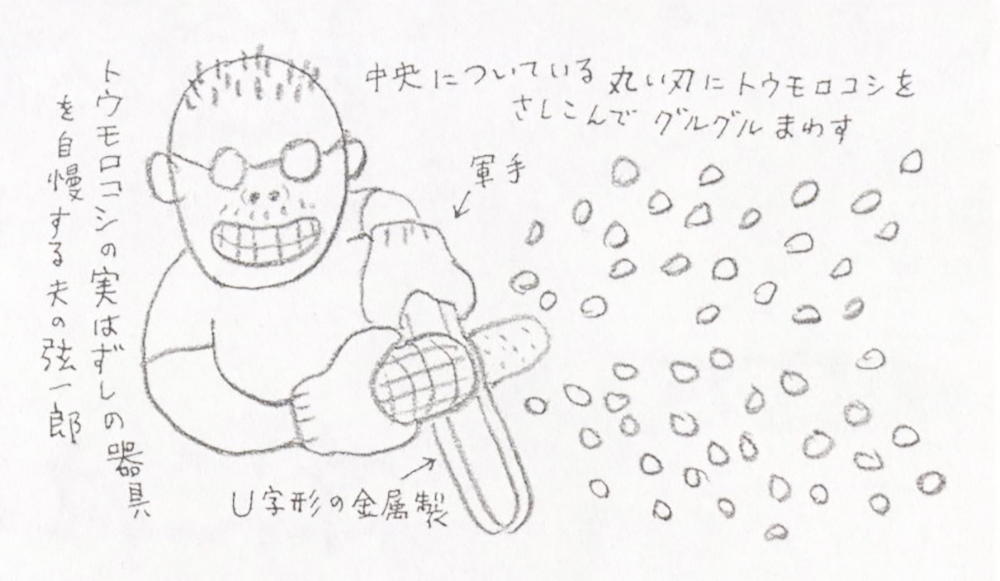 トウモロコシの実はずしの器具
を自慢する夫の弦一郎
中央についている丸い刃にトウモロコシを
さしこんでグルグルまわす
軍手
U字形の金属製